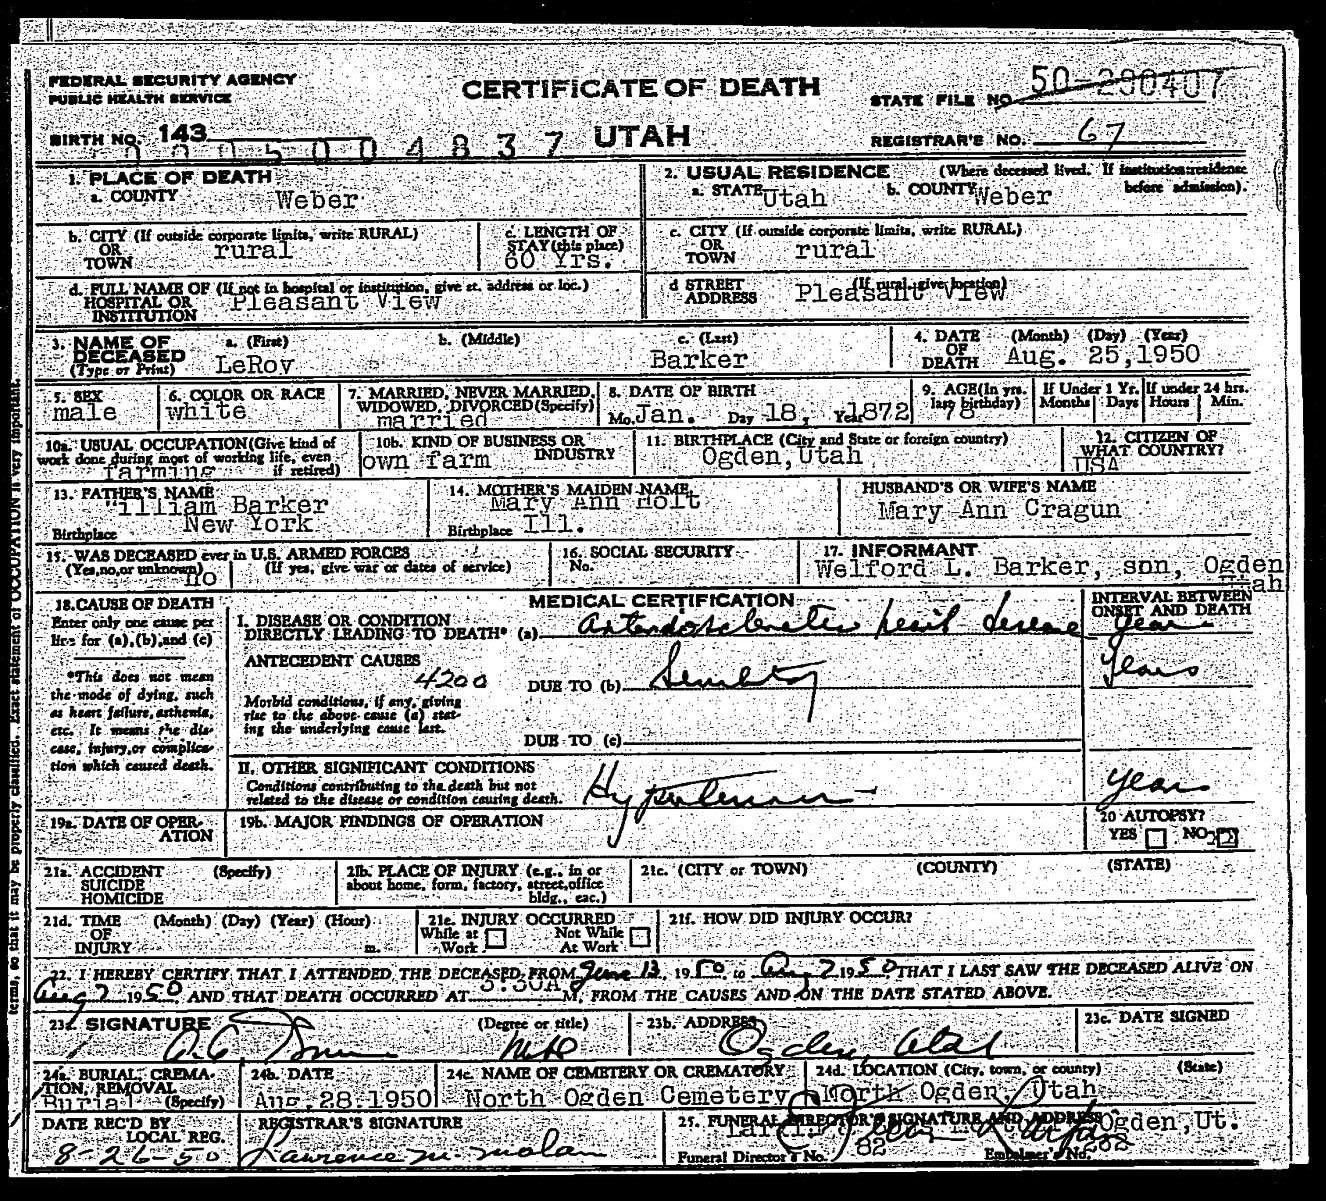 FEDERAL SECURITY AGENCY
PUBLIC HEALTH SERVICE
CERTIFICATE OF DEATH
STATE FILE NO. 50-290407
BIRTH NO. 143
004837
UTAH
REGISTRAR'S NO. 67
1. PLACE OF DEATH
a. COUNTY Weber
2. USUAL RESIDENCE (Where deceased lived. If institution: residence before admission).
a. STATE Utah b. COUNTY Weber
b. CITY (If outside corporate limits, write RURAL)
OR TOWN rural
c. LENGTH OF STAY (this place)
60 Yrs.
c. CITY (If outside corporate limits, write RURAL)
OR TOWN rural
d. FULL NAME OF (If not in hospital or institution, give st. address or loc.)
HOSPITAL OR INSTITUTION Pleasant View
d STREET ADDRESS (If rural, give location)
Pleasant View
3. NAME OF DECEASED (Type or Print)
a. (First) b. (Middle) c. (Last)
LeRoy Barker
4. DATE OF DEATH (Month) (Day) (Year)
Aug. 25, 1950
5. SEX
male
6. COLOR OR RACE
white
7. MARRIED, NEVER MARRIED, WIDOWED, DIVORCED (Specify)
married
8. DATE OF BIRTH
Mo. Jan. Day 18, Year 1872
9. AGE (In yrs. last birthday)
78
If Under 1 Yr. Months Days
If under 24 hrs. Hours Min.
10a. USUAL OCCUPATION (Give kind of work done during most of working life, even if retired)
farming
10b. KIND OF BUSINESS OR INDUSTRY
own farm
11. BIRTHPLACE (City and State or foreign country)
Ogden, Utah
12. CITIZEN OF WHAT COUNTRY?
USA
13. FATHER'S NAME
William Barker
Birthplace New York
14. MOTHER'S MAIDEN NAME
Mary Ann Holt
Birthplace Ill.
HUSBAND'S OR WIFE'S NAME
Mary Ann Cragun
15. WAS DECEASED ever in U.S. ARMED FORCES
(Yes, no, or unknown) no (If yes, give war or dates of service)
16. SOCIAL SECURITY No.
17. INFORMANT
Welford L. Barker, son, Ogden Utah
18. CAUSE OF DEATH
Enter only one cause per line for (a), (b), and (c)
*This does not mean the mode of dying, such as heart failure, asthenia, etc. It means the disease, injury, or complication which caused death.
MEDICAL CERTIFICATION
INTERVAL BETWEEN ONSET AND DEATH
I. DISEASE OR CONDITION DIRECTLY LEADING TO DEATH* (a) Arteriosclerotic heart disease years
ANTECEDENT CAUSES
4200
DUE TO (b) Senility Years
Morbid conditions, if any, giving rise to the above cause (a) stating the underlying cause last.
DUE TO (c)
II. OTHER SIGNIFICANT CONDITIONS
Conditions contributing to the death but not related to the disease or condition causing death.
Hypertension years
19a. DATE OF OPERATION
19b. MAJOR FINDINGS OF OPERATION
20 AUTOPSY?
YES NO
21a. ACCIDENT SUICIDE HOMICIDE (Specify)
21b. PLACE OF INJURY (e.g., in or about home, form, factory, street, office bldg., eac.)
21c. (CITY or TOWN) (COUNTY) (STATE)
21d. TIME OF INJURY (Month) (Day) (Year) (Hour) m.
21e. INJURY OCCURRED
While at Work Not While At Work
21f. HOW DID INJURY OCCUR?
22. I HEREBY CERTIFY THAT I ATTENDED THE DECEASED FROM June 13, 1950, to Aug 7 1950, THAT I LAST SAW THE DECEASED ALIVE ON
Aug 7 1950 AND THAT DEATH OCCURRED AT 5:30A M, FROM THE CAUSES AND ON THE DATE STATED ABOVE.
23a. SIGNATURE (Degree or title)
MD
23b. ADDRESS
Ogden, Utah
23c. DATE SIGNED
24a. BURIAL, CREMATION, REMOVAL (Specify)
Burial
24b. DATE
Aug. 28, 1950
24c. NAME OF CEMETERY OR CREMATORY
North Ogden Cemetery
24d. LOCATION (City, town, or county) (State)
North Ogden, Utah
DATE REC'D BY LOCAL REG.
8-26-50
REGISTRAR'S SIGNATURE
Lawrence M. Malan
25. FUNERAL DIRECTOR'S SIGNATURE AND ADDRESS
Ogden, Ut.
Funeral Director's No. 82
Embalmer's No.
terms, so that it may be properly classified. Exact statement of OCCUPATION is very important.